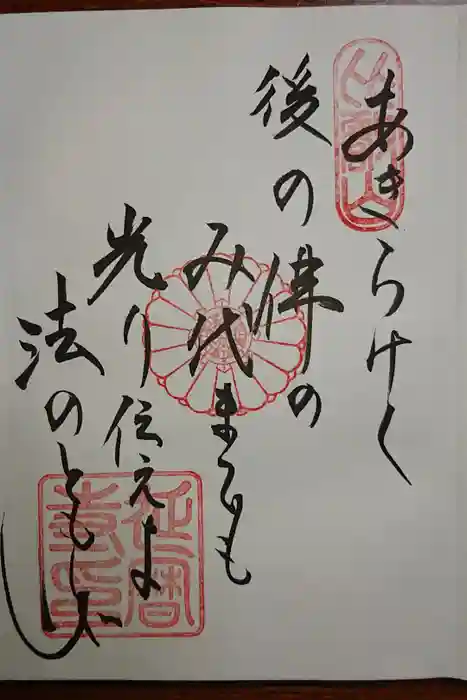 あきらけく
後の佛の
み代までも
光り伝えよ
法のともしび
比叡山
延暦
寺印